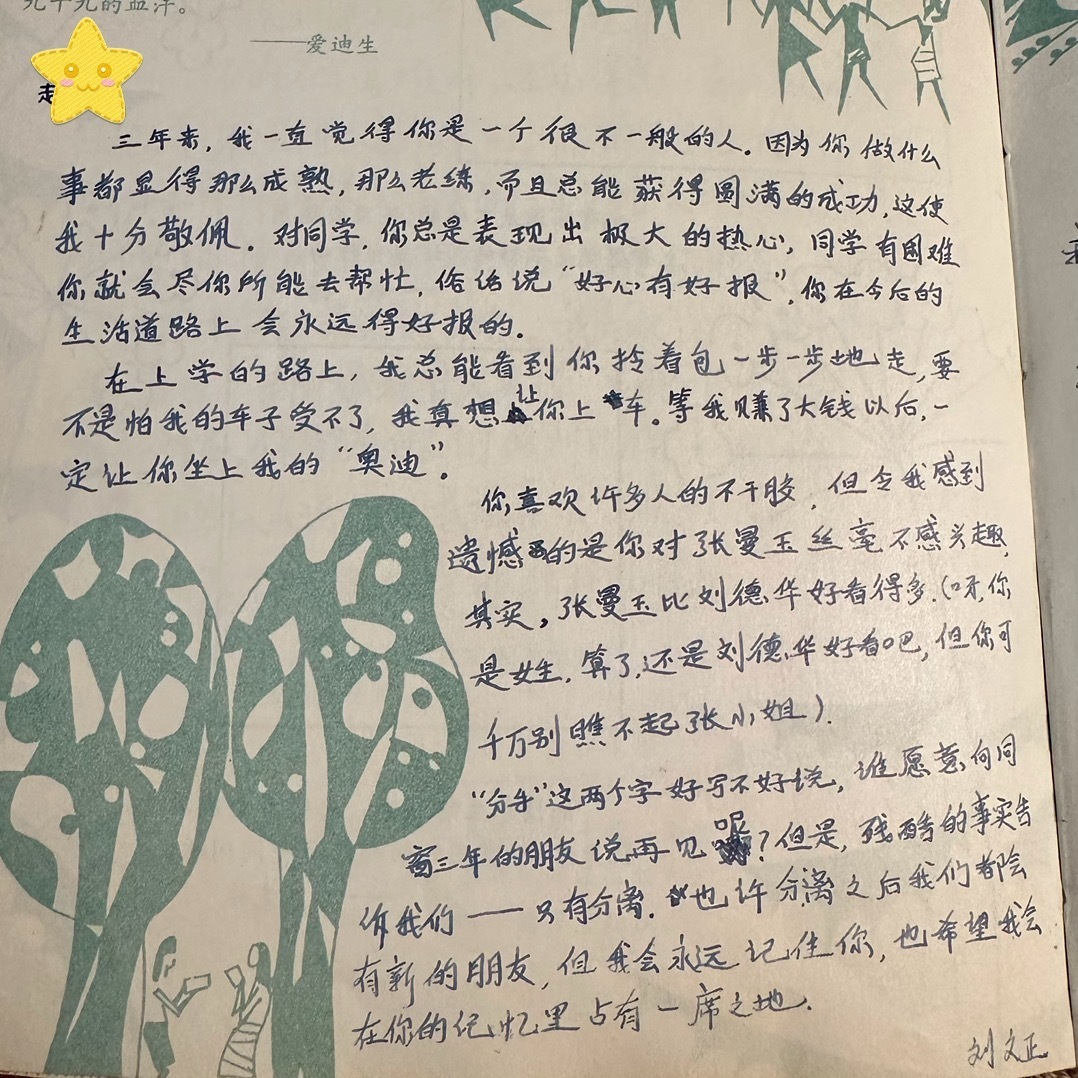 九十九的血汗。
——爱迪生
三年来，我一直觉得你是一个很不一般的人。因为你做什么
事都显得那么成熟，那么老练，而且总能获得圆满的成功，这使
我十分敬佩。对同学，你总是表现出极大的热心，同学有困难
你就会尽你所能去帮忙，俗话说“好心有好报”，你在今后的
生活道路上会永远得好报的。
在上学的路上，我总能看到你拎着包一步一步地走，要
不是怕我的车子受不了，我真想让你上车。等我赚了大钱以后，一
定让你坐上我的“奥迪”。
你喜欢许多人的不干胶，但令我感到
遗憾的是你对张曼玉丝毫不感兴趣，
其实，张曼玉比刘德华好看得多.（呀，你
是女生，算了，还是刘德华好看吧，但你可
千万别瞧不起张小姐）.
“分手”这两个字好写不好说，谁愿意向同
窗三年的朋友说再见呢？但是，残酷的事实告
诉我们——只有分离．也许分离之后我们都会
有新的朋友，但我会永远记住你，也希望我会
在你的记忆里占有一席之地．
刘文正